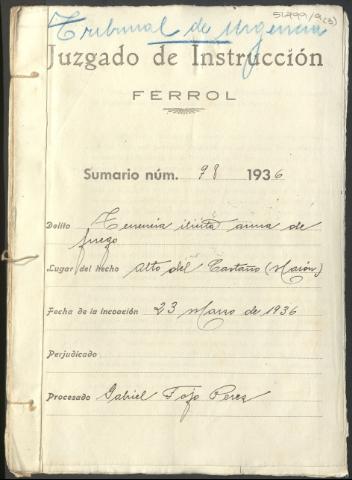 51499/9(3)
Tribunal de Urgencia
Juzgado de Instrucción
FERROL
Sumario núm. 98 1936
Delito Tenencia ilícita arma de
fuego
Lugar del hecho Alto del Castaño (Narón)
Fecha de la incoación 23 Marzo de 1936
Perjudicado
Procesado Gabriel Tojo Perez